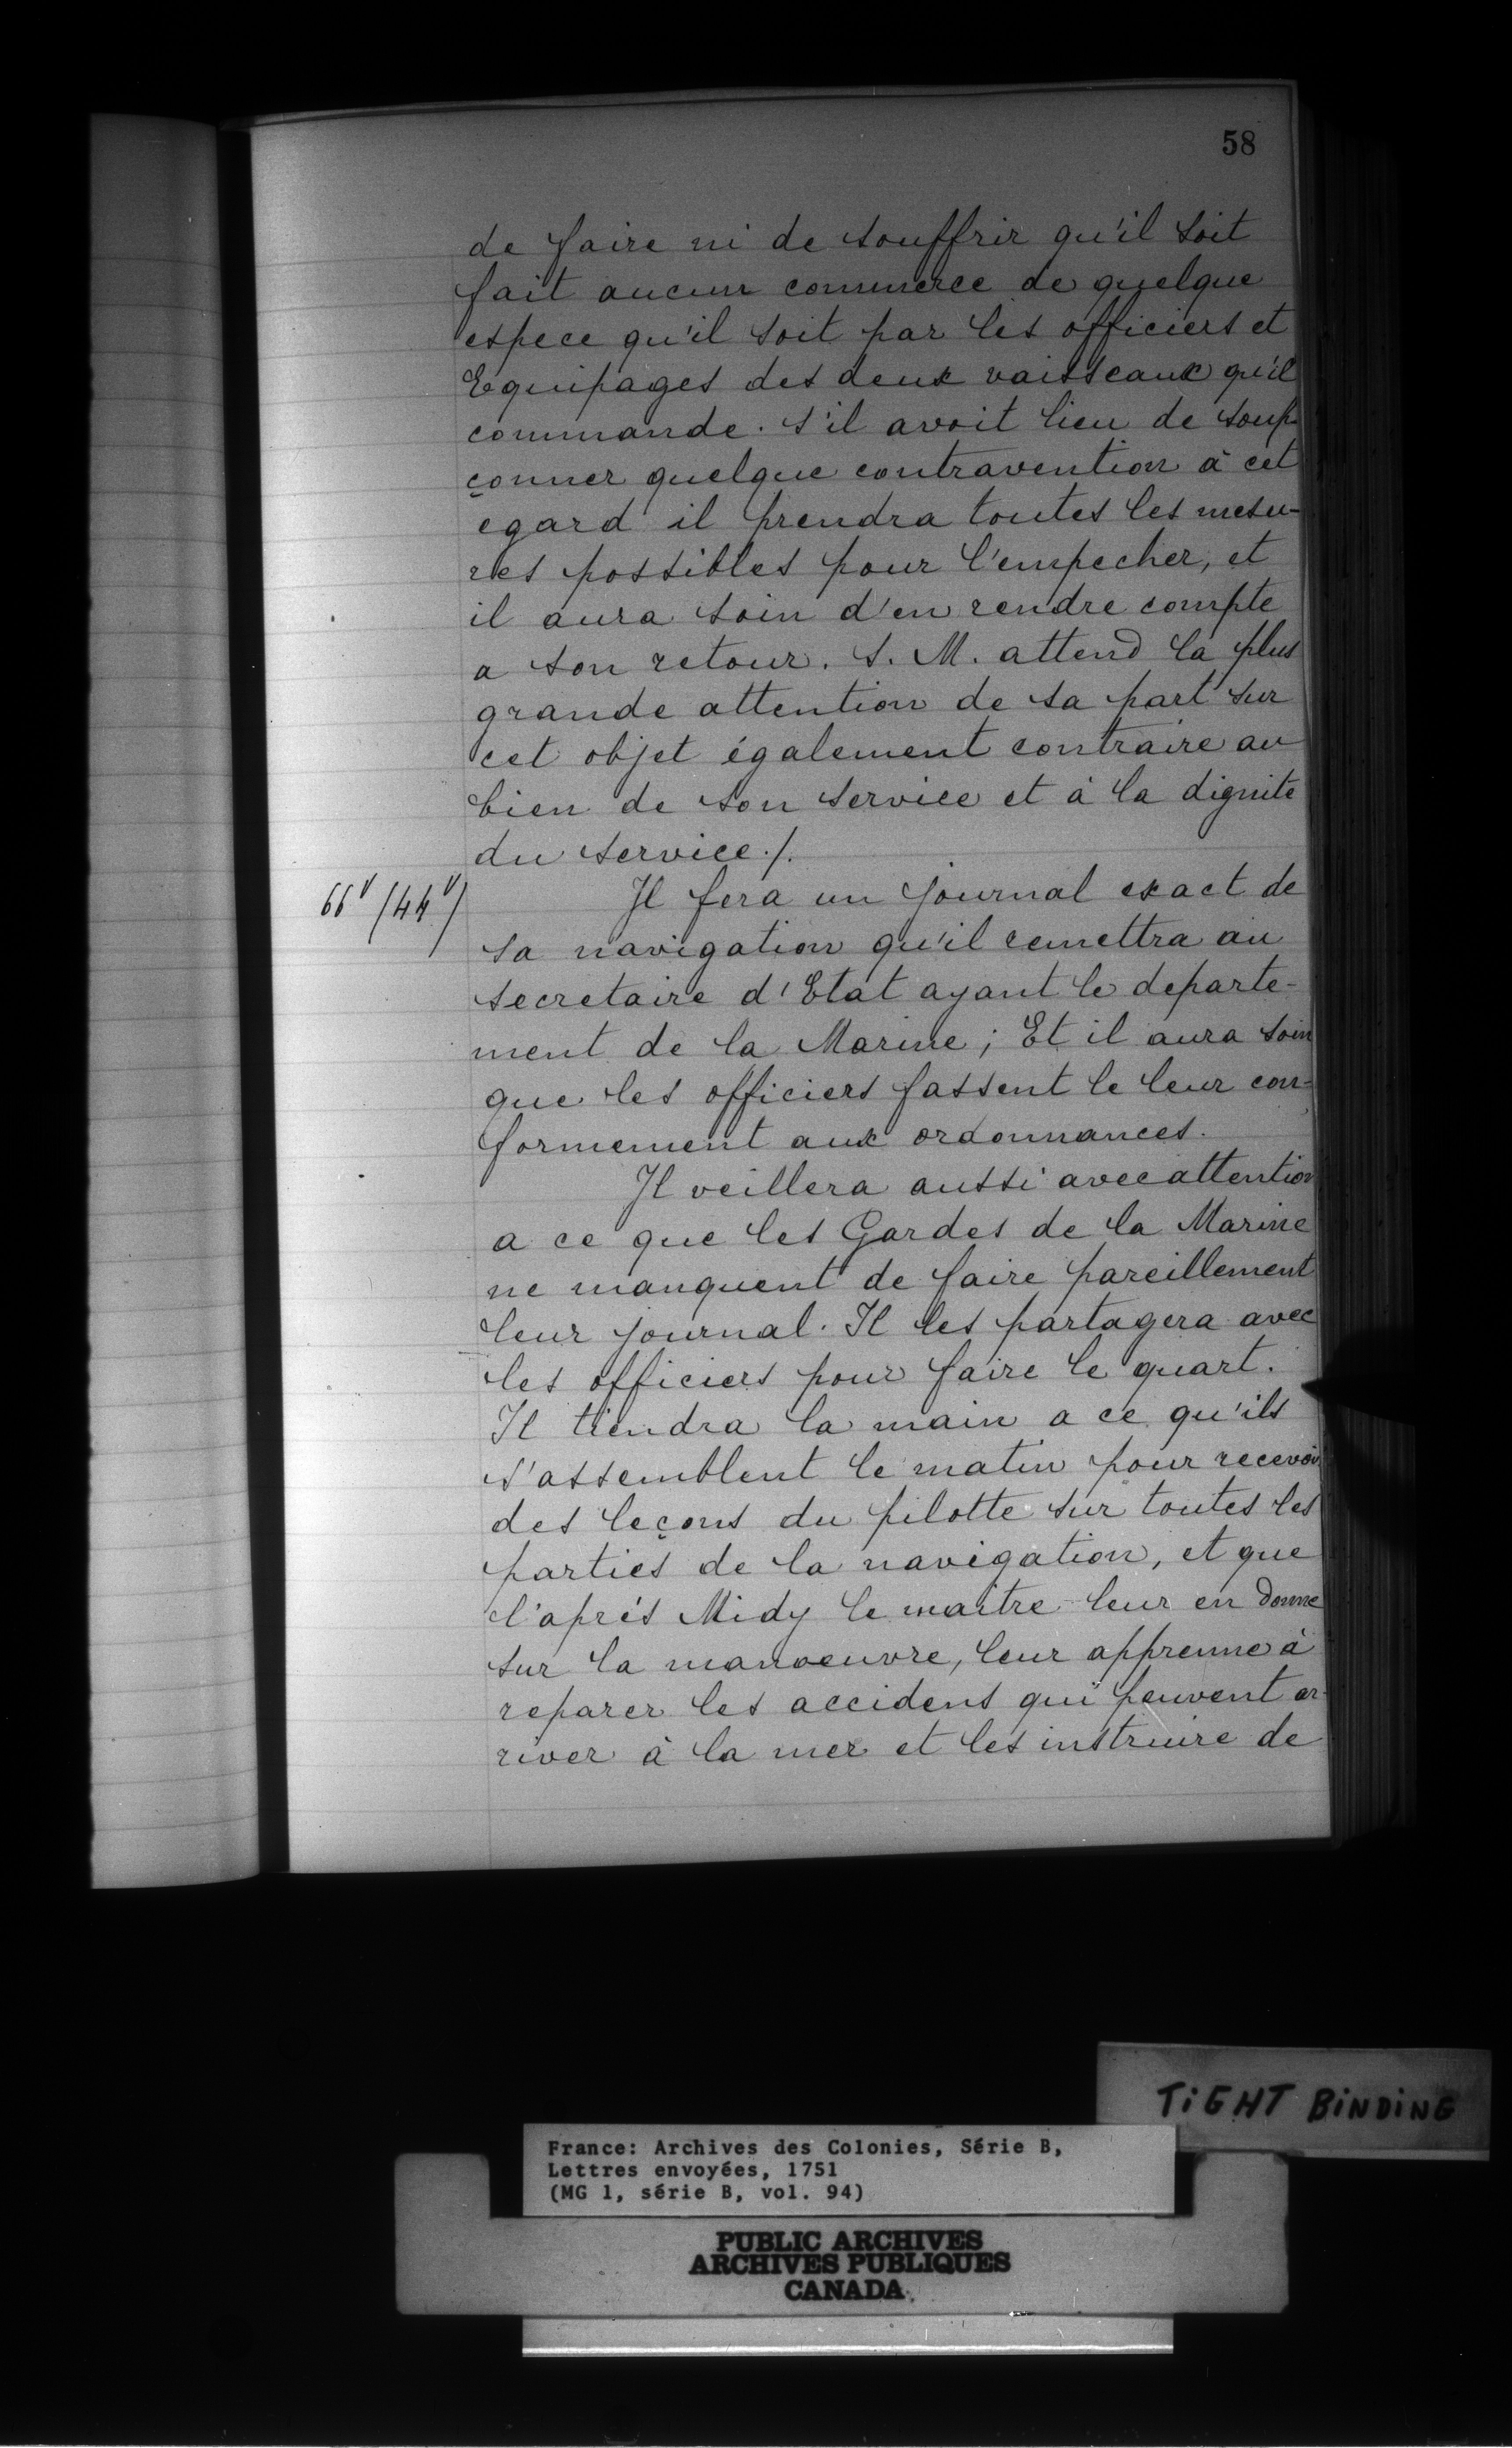 58
de faire ni de souffrir qu'il soit
fait aucun commerce de quelque
espece qu'il soit par les officiers et
Equipages des deux vaisseaux qu'il
commande. s'il avoit lieu de soup-
çonner quelque contravention à cet
egard il prendra toutes les mesu-
res possibles pour l'empecher, et
il aura soin d'en rendre compte
a son retour. S. M. attend la plus
grande attention de sa part sur
cet objet également contraire au
bien de son service et à la dignité
du service./.
66v/(44v)
Il fera un journal exact de
sa navigation qu'il remettra au
secretaire d'Etat ayant le departe-
ment de la Marine; Et il aura soin
que les officiers fassent le leur con-
formement aux ordonnances.
Il veillera aussi avec attention
a ce que les Gardes de la Marine
ne manquent de faire pareillement
leur journal. Il les partagera avec
les officiers pour faire le quart.
Il tiendra la main a ce qu'ils
s'assemblent le matin pour recevoir
des leçons du pilotte sur toutes les
parties de la navigation, et que
l'aprés Midy le maitre leur en donne
sur la manoeuvre, leur apprenne à
reparer les accidens qui peuvent ar-
river à la mer et les instruire de
TIGHT BINDING
France: Archives des Colonies, Série B,
Lettres envoyées, 1751
(MG 1, série B, vol. 94)
PUBLIC ARCHIVES
ARCHIVES PUBLIQUES
CANADA